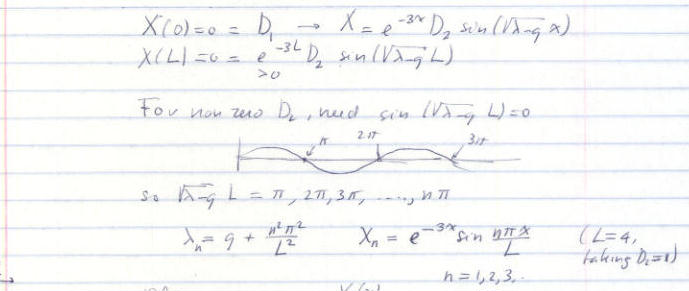 X(0)=0 = D₁ → X = e^{-3x} D₂ sin(√(λ-9) x)
X(L)=0 = e^{-3L} D₂ sin(√(λ-9) L)
>0
For non zero D₂, need sin(√(λ-9) L)=0
π 2π 3π
so √(λ-9) L = π, 2π, 3π, ....., nπ
λₙ = 9 + n²π²/L² Xₙ = e^{-3x} sin nπx/L (L=4,
taking D₂=1)
n=1,2,3,..